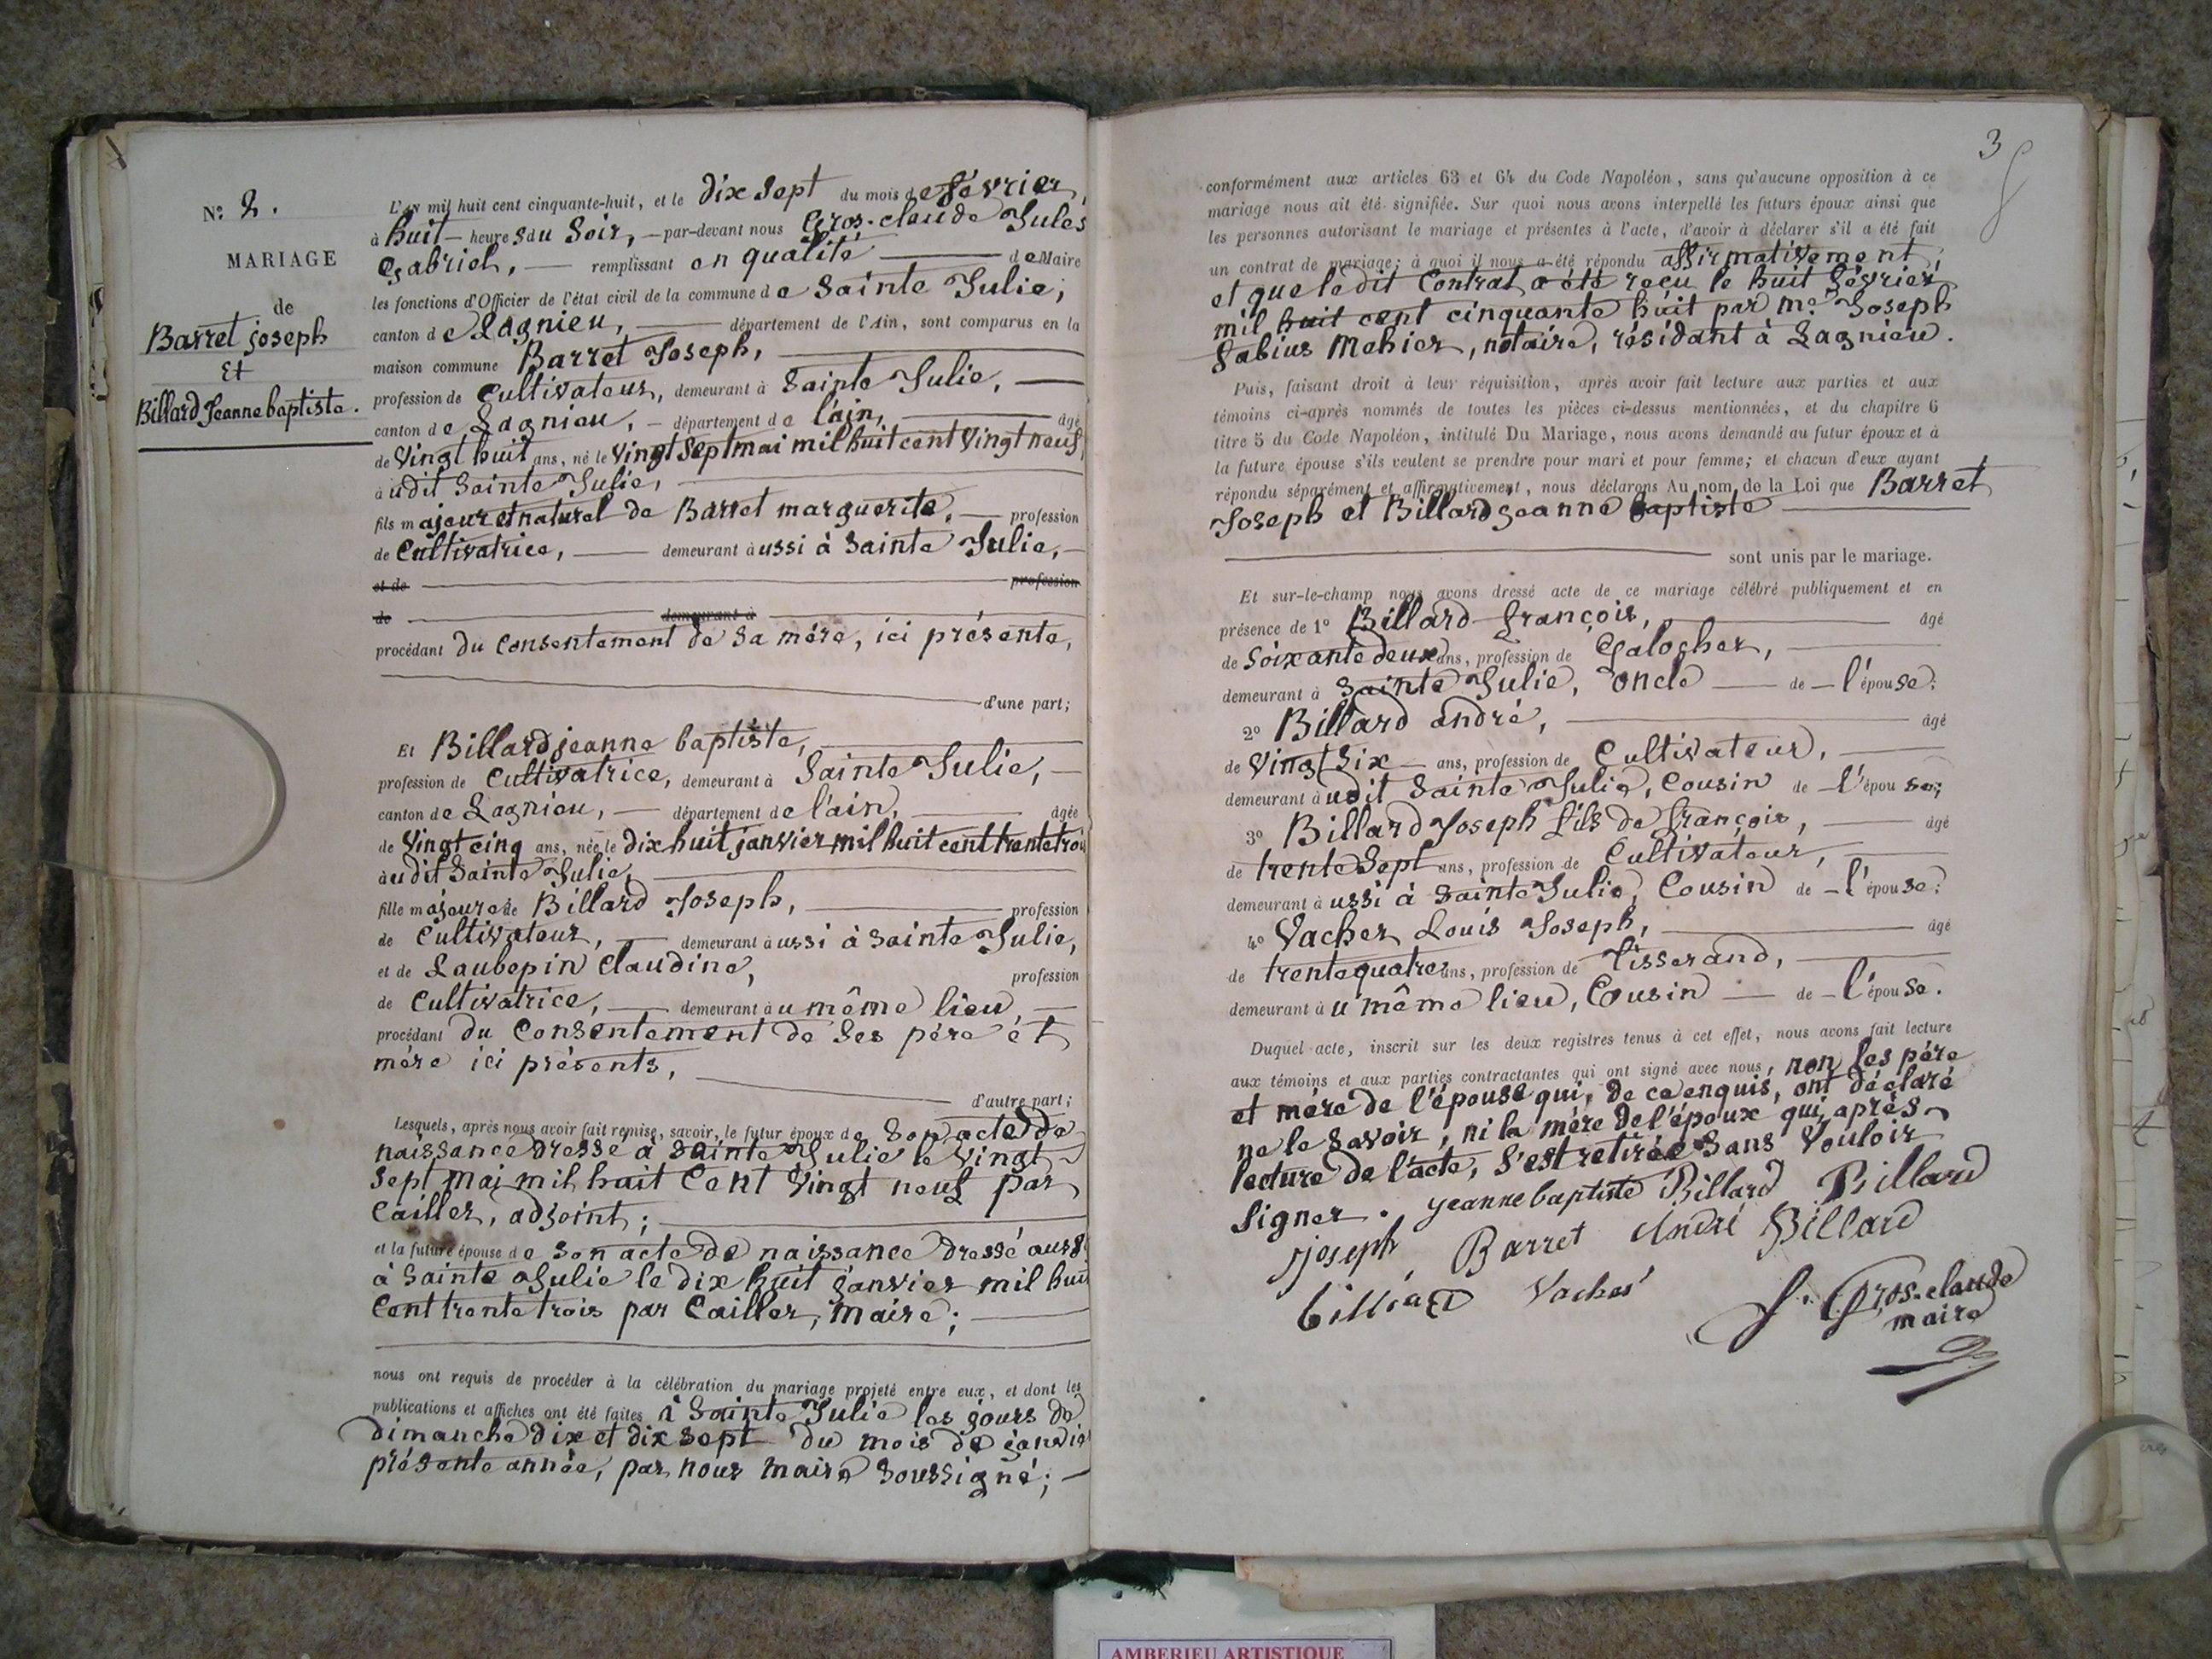 N.° 2.
MARIAGE
de
Barret joseph
Et
Billard Jeanne baptiste.
L'AN mil huit cent cinquante-huit, et le dix Sept du mois de février,
à huit heures du Soir, par-devant nous Gros-claude Jules
Gabriel, remplissant en qualité de Maire
les fonctions d'Officier de l'état civil de la commune de Sainte Julie,
canton de Lagnieu, département de l'Ain, sont comparus en la
maison commune Barret Joseph,
profession de Cultivateur, demeurant à Sainte Julie,
canton de Lagnieu, département de l'ain, âgé
de Vingt huit ans, né le Vingt Sept mai mil huit cent Vingt neuf,
audit Sainte Julie,
fils majeur et naturel de Barret marguerite, profession
de Cultivatrice, demeurant aussi à Sainte Julie,
et de profession
de demeurant à
procédant du Consentement de Sa mére, ici présente,
d'une part;
Et Billard jeanne baptiste,
profession de Cultivatrice, demeurant à Sainte Julie,
canton de Lagnieu, département de l'ain, âgée
de Vingt cinq ans, née le dix huit janvier mil huit cent trente trois
audit Sainte Julie,
fille majeure de Billard Joseph, profession
de Cultivateur, demeurant aussi à Sainte Julie,
et de Laubepin Claudine, profession
de Cultivatrice, demeurant au même lieu,
procédant du Consentement de Ses pére et
mére ici présents,
d'autre part;
Lesquels, après nous avoir fait remise, savoir, le futur époux de Son acte de
naissance Dressé à Sainte Julie le Vingt
Sept mai mil huit Cent Vingt neuf par
Cailler, adjoint;
et la future épouse de Son acte de naissance Dressé aussi
à Sainte Julie le dix huit janvier mil huit
Cent trente trois par Cailler, maire;
nous ont requis de procéder à la célébration du mariage projeté entre eux, et dont les
publications et affiches ont été faites à Sainte Julie les jours de
dimanche dix et dix Sept du mois de janvier
présente année, par nous maire Soussigné;
3
conformément aux articles 63 et 64 du Code Napoléon, sans qu'aucune opposition à ce
mariage nous ait été signifiée. Sur quoi nous avons interpellé les futurs époux ainsi que
les personnes autorisant le mariage et présentes à l'acte, d'avoir à déclarer s'il a été fait
un contrat de mariage; à quoi il nous a été répondu affirmativement,
et que le dit Contrat a été reçu le huit février
mil huit cent cinquante huit par Me Joseph
Fabius Mehier, notaire, résidant à Lagnieu.
Puis, faisant droit à leur réquisition, après avoir fait lecture aux parties et aux
témoins ci-après nommés de toutes les pièces ci-dessus mentionnées, et du chapitre 6
titre 5 du Code Napoléon, intitulé Du Mariage, nous avons demandé au futur époux et à
la future épouse s'ils veulent se prendre pour mari et pour femme; et chacun d'eux ayant
répondu séparément et affirmativement, nous déclarons Au nom de la Loi que Barret
Joseph et Billard jeanne baptiste
sont unis par le mariage.
Et sur-le-champ nous avons dressé acte de ce mariage célébré publiquement et en
présence de 1° Billard françois, âgé
de Soixante deux ans, profession de Galocher,
demeurant à Sainte Julie, oncle de l'épouse;
2° Billard andré, âgé
de Vingt Six ans, profession de Cultivateur,
demeurant audit Sainte Julie, Cousin de l'épouse;
3° Billard Joseph fils de françois, âgé
de trente Sept ans, profession de Cultivateur,
demeurant aussi à Sainte Julie, Cousin de l'épouse;
4° Vacher Louis Joseph, âgé
de trente quatre ans, profession de Tisserand,
demeurant au même lieu, Cousin de l'épouse.
Duquel acte, inscrit sur les deux registres tenus à cet effet, nous avons fait lecture
aux témoins et aux parties contractantes qui ont signé avec nous, non les pére
et mére de l'épouse qui, de ce enquis, ont déclaré
ne le Savoir, ni la mére de l'époux qui, après
lecture de l'acte, S'est retirée Sans Vouloir
Signer. jeanne baptiste Billard Billard
joseph Barret André Billard
billiard Vacher J. Gros-claude
maire
AMBERIEU ARTISTIQUE